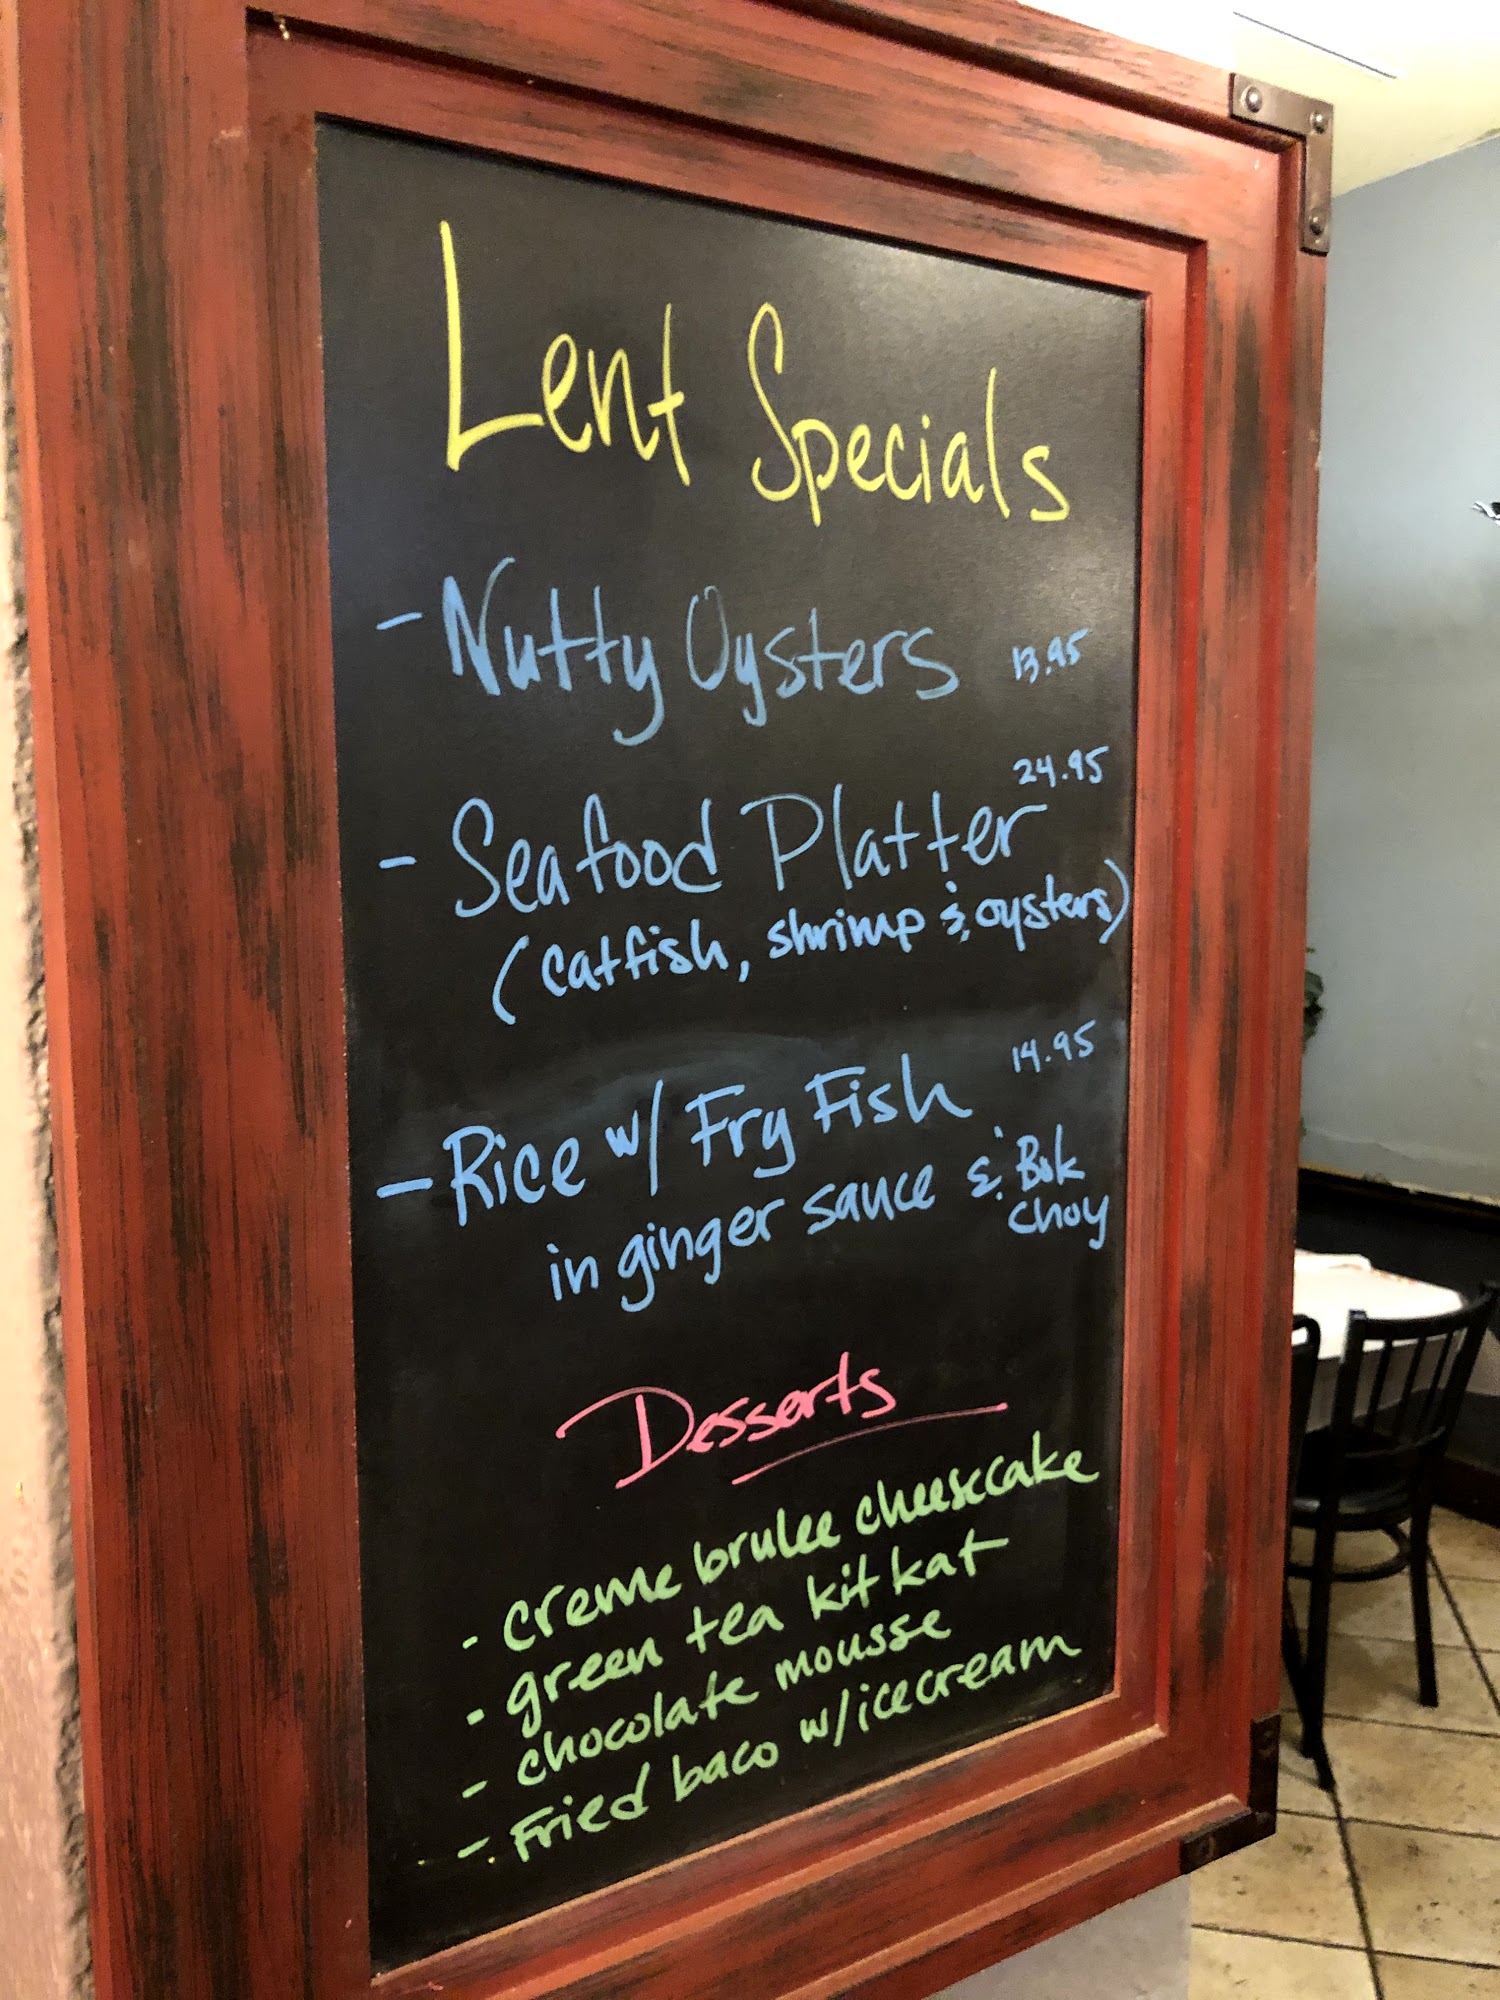 Lent Specials
- Nutty Oysters 13.95
- Seafood Platter 24.95
(catfish, shrimp & oysters)
- Rice w/ Fry Fish 14.95
in ginger sauce & Bok
choy
Desserts
- creme brulee cheesecake
- green tea kit kat
- chocolate mousse
- Fried baco w/icecream